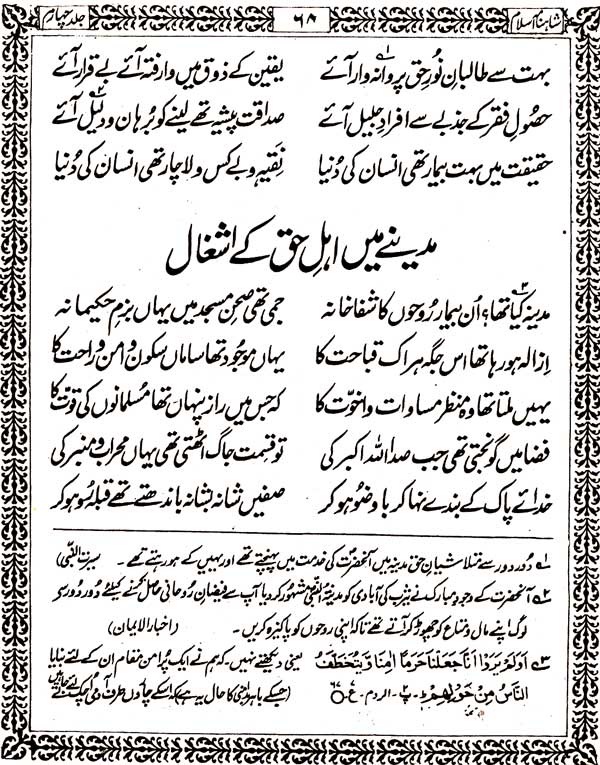 شاہنامہ اسلام ۶۸ جلد چہارم
بہت سے طالبانِ نُورِ حق پروانہ وار آئے یقین کے ذوق میں وارفتہ آئے بے قرار آئے
حصُولِ فقر کے جذبے سے افرادِ جلیل آئے صداقت پیشہ تھے لینے کو بُرہان و دلیل آئے
حقیقت میں بہت بیمار تھی انسان کی دُنیا نقیہہ و بے کس و لاچار تھی انسان کی دُنیا
مدینے میں اہلِ حق کے اشغال
مدینہ کیا تھا؟ اُن بیمار رُوحوں کا شفاخانہ جمی تھی صحنِ مسجد میں یہاں بزمِ حکیمانہ
ازالہ ہو رہا تھا اس جگہ ہر اک قباحت کا یہاں موجُود تھا ساماں سکون و امن و راحت کا
یہیں ملتا تھا وہ منظر مساوات و اخوّت کا کہ جس میں راز پنہاں تھا مُسلمانوں کی قوّت کا
فضا میں گونجتی تھی جب صدا اللہ اکبر کی تو قسمت جاگ اٹھتی تھی یہاں محراب و منبر کی
خدائے پاک کے بندے نہا کر با وضُو ہو کر صفیں شانہ بشانہ باندھتے تھے قبلہ رُو ہو کر
۱؎ دُور دُور سے متلاشیانِ حق مدینہ میں آنحضرتؐ کی خدمت میں پہنچتے تھے اور یہیں کے ہو رہتے تھے۔ (سیرت النبیؐ)
۲؎ آنحضرت کے وجودِ مبارک نے یثرب کی آبادی کو مدینۃ النبیؐ مشہور کر دیا آپ سے فیضانِ رُوحانی حاصل کرنے کیلئے دُور دُور سے
لوگ اپنے مال و متاع کو چھوڑ کر آتے تھے تاکہ اپنی روحوں کو پاکیزہ کریں۔ (اخبار الایمان)
۳؎ اَوَلَمْ يَرَوْا اَنَّا جَعَلْنَا حَرَمًا اٰمِنًا وَّيُتَخَطَّفُ یعنی دیکھتے نہیں کہ ہم نے ایک پُر امن مقام ان کے لئے بنایا
النَّاسُ مِنْ حَوْلِهِمْ۔ پ۔ الروم۔ ع۔ ۶۷ (جسکے باہر کا حال یہ ہے) کہ اسکے چاروں طرف آدمی اُچک لئے جاتے ہیں